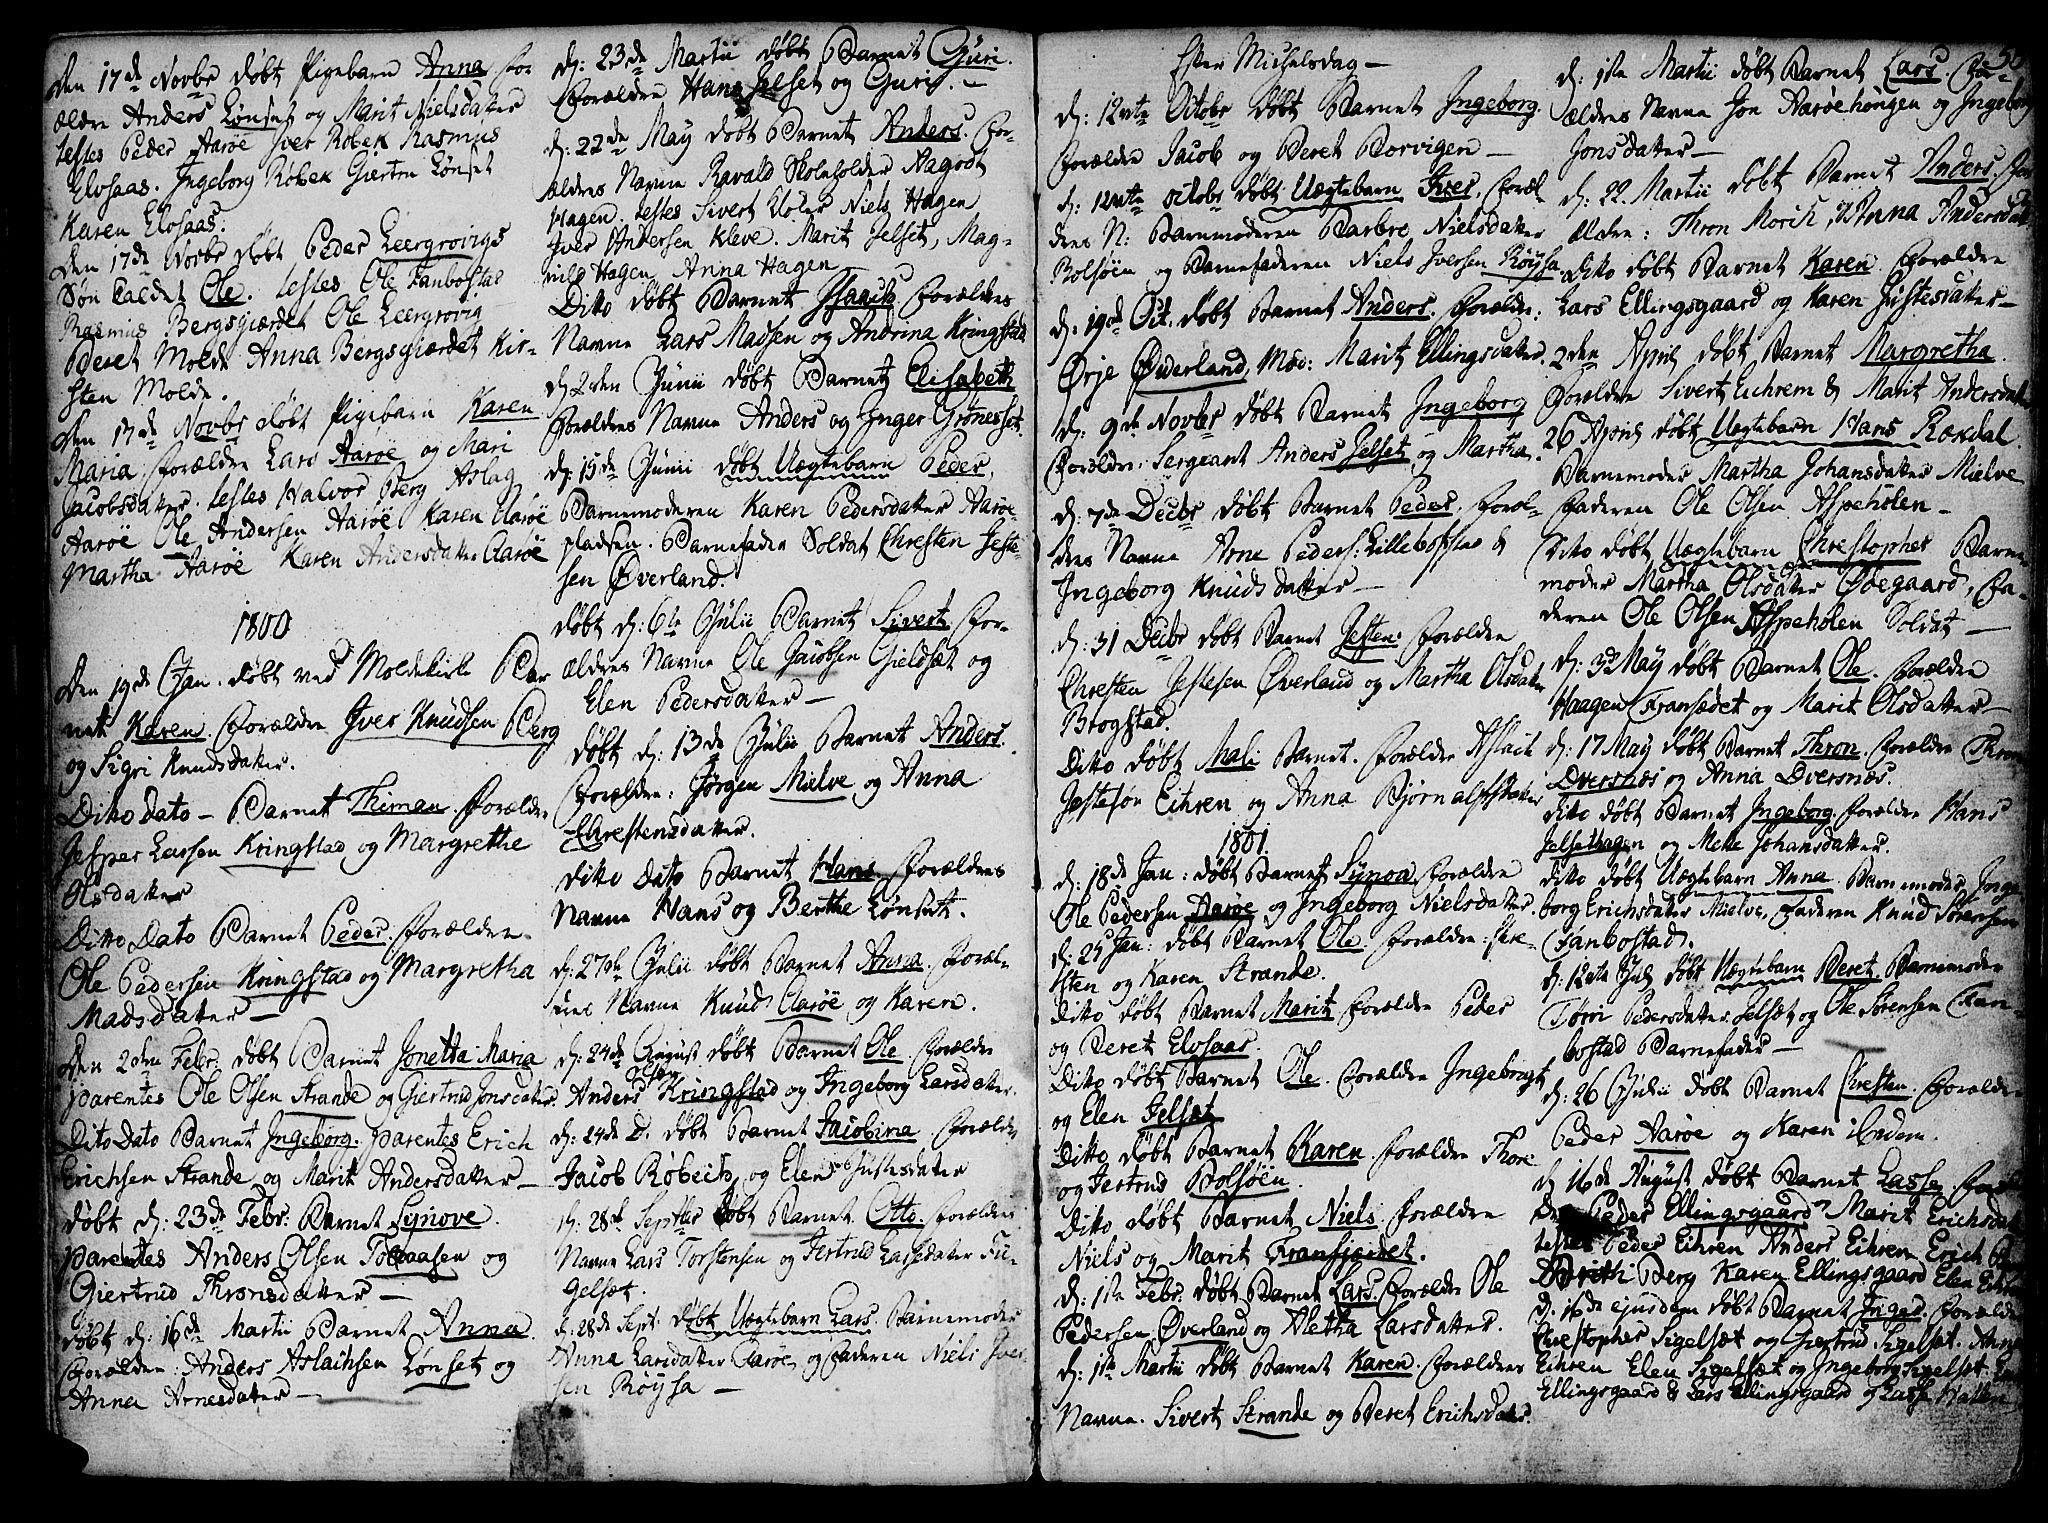 Den 17de Novbr døbt Pigebarn Anna For
ældre Anders Lønset og Marit Nielsdatter
testes Peder Aarøe Iver Röbek Rasmus
Elvsaas. Ingeborg Röbek Giertru Lønset
Karen Elvsaas.
Den 17de Novbr døbt Peder Leergrovigs
Søn kaldet Ole. testes Ole Fanbostad
Rasmus Bergsgiærdet Ole Leergrovig
Beret Molde Anna Bergsgiærdet Kir-
sten Molde.
Den 17de Novbr døbt Pigebarn Karen
Maria forældre Lars Aarøe og Mari
Jacobsdatter. testes Halvor Berg Aslag
Aarøe Ole Andersen Aarøe Karen Aarøe
Martha Aarøe Karen Andersdatter Aarøe
1800
Den 19de Jan. døbt ved Moldekirke Bar
net Karen. Forældre Iver Knudsen Berg
og Sigri Knudsdatter.
Ditto dato – Barnet Thomas. forældre
Jesper Larsen Kringstad og Margrethe
Olsdatter
Ditto Dato Barnet Peder. forældre
Ole Pedersen Kringstad og Margretha
Madsdatter –
Den 2den Febr. døbt Barnet Jonetta Maria
parentes Ole Olsen Strande og Giertrud Jonsdatter.
Dito Dato Barnet Ingeborg. parentes Erich
Erichsen Strande og Marit Andersdatter –
døbt d: 23de Febr: Barnet Synove.
parentes Anders Olsen Tøtaasen og
Giertrud Thronsdatter –
døbt d: 16de Martii Barnet Anna
Forældre: Anders Aslachsen Lønset og
Anna Arnesdatter –
d: 23de Martii døbt Barnet Guri.
Forældre Hans Jelset og Guri. –
d: 22de May døbt Barnet Anders. For-
ældres Navne Ravald Skoleholder Aagodt
Hagen. testes Sivert Niels Hagen
Iver Andersen Kleve. Marit Jelset, Mag-
nild Hagen Anna Hagen –
Ditto døbt Barnet Isaach Forældres
Navne Lars Madsen og Andrina Kringstad
d: 2den Junii døbt Barnet Elisabeth
Forældres Navne Anders og Inger Grønesset.
d: 15de Junii døbt Uægtebarn Peder.
Barnemoderen Karen Pedersdatter Aarøe-
pladsen. Barnefader Soldat Chresten Jeste-
sen Øverland.
døbt d: 6te Julii Barnet Sivert For-
ældres Navne Ole Jacobsen Gieldsæt og
Elen Pedersdatter –
døbt d: 13de Julii Barnet Anders.
Forældre: Jørgen Mielve og Anna
Chrestensdatter.
ditto Dato Barnet Hans Forældres
Navne Hans og Berthe Lønset.
d: 27de Julii døbt Barnet Anna. Foræl-
dres Navne Knud Aarøe og Karen.
d: 24de August døbt Barnet Ole. Forældre
Anders Olsen Kringstad og Ingeborg Larsdatter.
d: 24de D. døbt Barnet Jacobina. Forældre
Jacob Röbech og Elen Justesdatter
d: 28de Septbr døbt Barnet Otto. Forældres
Navne Lars Torstensen og Jertrud Larsdatter Fu-
gelsæt.
d: 28de Sept: døbt Uægtebarn Lars. Barnemoder
Anna Larsdatter Aarøe og Faderen Niels Iver-
sen Röysa –
Efter Michelsdag –
d: 12vte Octobr døbt Barnet Ingeborg.
Forældre Jacob og Beret Borvigen –
d: 12vte Octobr døbt Uægtebarn Iver. Foræl
dres N: Barnmoderen Barbro Nielsdatter
Bolsöen og Barnefaderen Niels Iversen Röysa.
d: 19de Oct. døbt Barnet Anders. Forældre:
Ørje Øverland, Mod: Marit Ellingsdatter.
d: 9de Novbr døbt Barnet Ingeborg
Forældre: Sergeant Anders Jelset og Martha.
d: 7de Decbr døbt Barnet Peder. foræl-
dres Navne Arne Peders: Lillebostad &
Ingeborg Knudsdatter –
d: 31 Decbr døbt Barnet Jesten. forældre
Chresten Jestesen Øverland og Martha Olsdatter
Brogstad.
Ditto døbt Mali Barnet. Forældre Aslach
Jestesøn Eihren og Anna Bjørnalfsdatter
1801.
d: 18de Jan: døbt Barnet Synov. forældre
Ole Pedersen Aarøe og Ingeborg Nielsdatter.
d: 25 Jan: døbt Barnet Ole. forældre: Thore-
sten og Karen Strande.
Ditto døbt Barnet Marit. forældre Peder
og Beret Elvsaas.
Ditto døbt Barnet Ole. forældre Ingebrigt
og Elen Jelset
Ditto døbt Barnet Karen. forældre Thore
og Jertrud Bolsöen.
Ditto døbt Barnet Niels. Forældre
Niels og Marit Fransgiærdet.
d: 1ste Febr: døbt Barnet Lars. forældre Ole
Pedersen Øverland og Aletha Larsdatter.
d: 1ste Martii døbt Barnet Karen. Forældres
Navne. Sivert Strande og Beret Erichsdatter.
d: 1ste Martii døbt Barnet Lars. For-
ældres Navne Jon Aarøehougen og Ingeborg
Jonsdatter –
d: 22 Martii døbt Barnet Anders. For
ældre: Thron Morich, & Anna Andersdatter
Ditto døbt Barnet Karen. forældre
Lars Ellingsgaard og Karen Justesdatter –
2den April døbt Barnet Margretha.
Forældre Sivert Eichrem & Marit Andersdatter
26 April døbt Uægtebarn Hans Roxdal
Barnemoder Martha Johansdatter Mielve
Faderen Ole Olsen Aspeholen –
Ditto døbt Uægtebarn Chrestopher Barne
moder Martha Olsdatter Ødegaard, Fa-
deren Ole Olsen Aspeholen Soldat –
d: 3de May døbt Barnet Ole. forældre
Haagen Fransædet og Marit Olsdatter –
d: 17 May døbt Barnet Thron. forældre Thron
Dversnæs og Anna Dversnæs.
dito døbt Barnet Ingeborg. forældre Hans
Jelsethagen og Mette Johansdatter.
ditto døbt Uægtebarn Anna. Barnemoder Inge
borg Erichsdatter Mielve, faderen Knud Sørensen
Fanbostad.
d: 12vte Juli døbt Uægtebarn Beret. Barnemoder
Pedersdatter Jelset og Ole Sørensen Fan-
bostad Barnefader –
d: 26 Julii døbt Barnet Chresten. Forældre
Peder Aarøe og Karen ibidem.
d: 16de August døbt Barnet Lasse Foræl
Peder Ellingsgaard Marit Erichsdat
testes Peder Eihren Anders Eihren Erich
Berith Berg Karen Ellingsgaard Elen Eihren
d: 16de ejusdem døbt Barnet Inger. forældre
Chrestopher Sigelsæt og Giertrud Sigelset. Anne
Eihren Elen Sigelsæt og Ingeborg Sigelset.
Ellingsgaard & Lars Ellingsgaard og Lasse